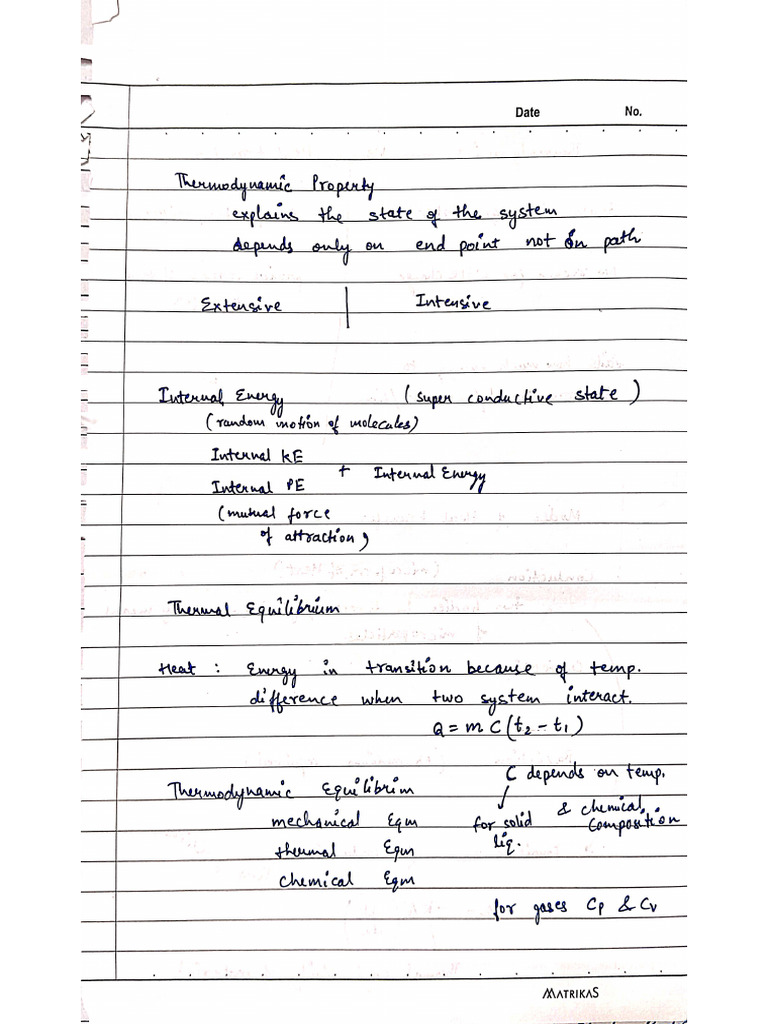 Date No.
Thermodynamic Property
explains the state of the system
depends only on end point not on path
Extensive | Intensive
Internal Energy (super conductive state)
(random motion of molecules)
Internal KE
+ Internal Energy
Internal PE
(mutual force
of attraction)
Thermal Equilibrium
Heat : Energy in transition because of temp.
difference when two system interact.
Q = m C (t₂ - t₁)
C depends on temp.
& chemical composition
for solid
liq.
Thermodynamic Equilibrim
mechanical Eqm
thermal Eqm
chemical Eqm
for gases Cp & Cv
MATRIKAS